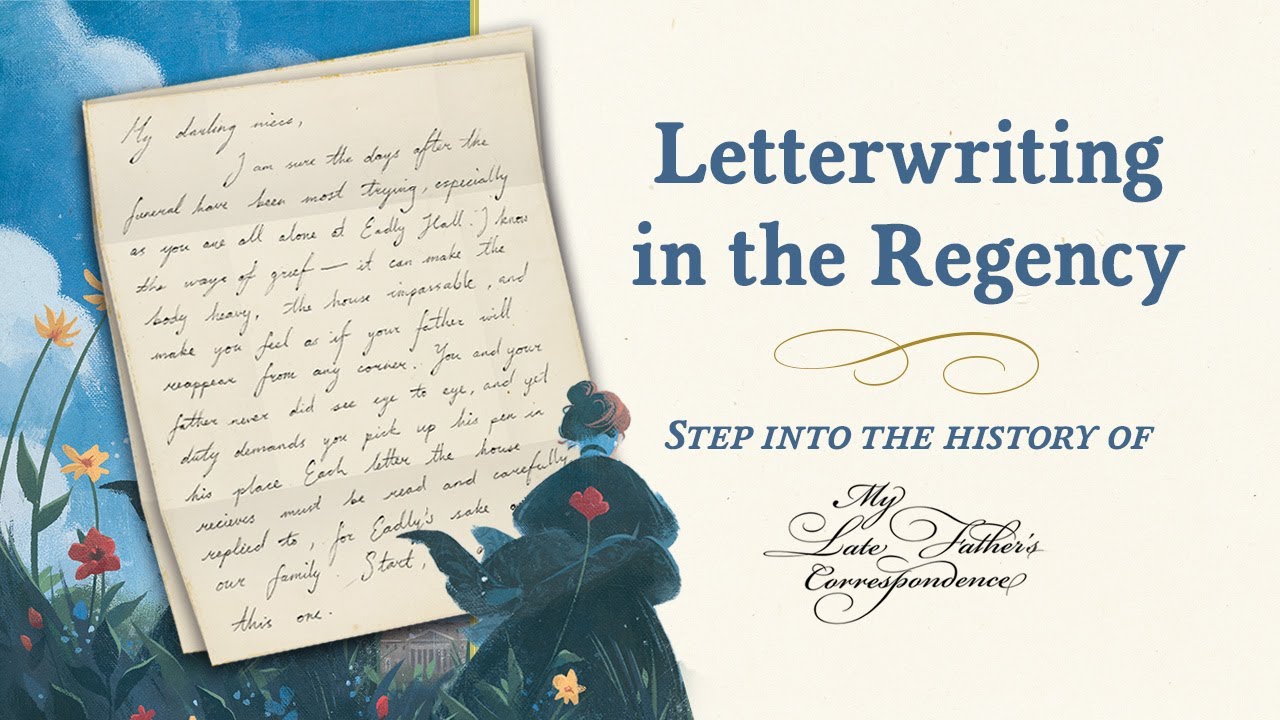 My darling niece,
I am sure the days after the
funeral have been most trying, especially
as you are all alone at Eadly Hall. I know
the ways of grief — it can make the
body heavy, the house impassable, and
make you feel as if your father will
reappear from any corner. You and your
father never did see eye to eye, and yet
duty demands you pick up his pen in
his place. Each letter the house
recieves must be read and carefully
replied to, for Eadly's sake
our family. Start,
this one.
Letterwriting
in the Regency
STEP INTO THE HISTORY OF
My
Late Father's
Correspondence